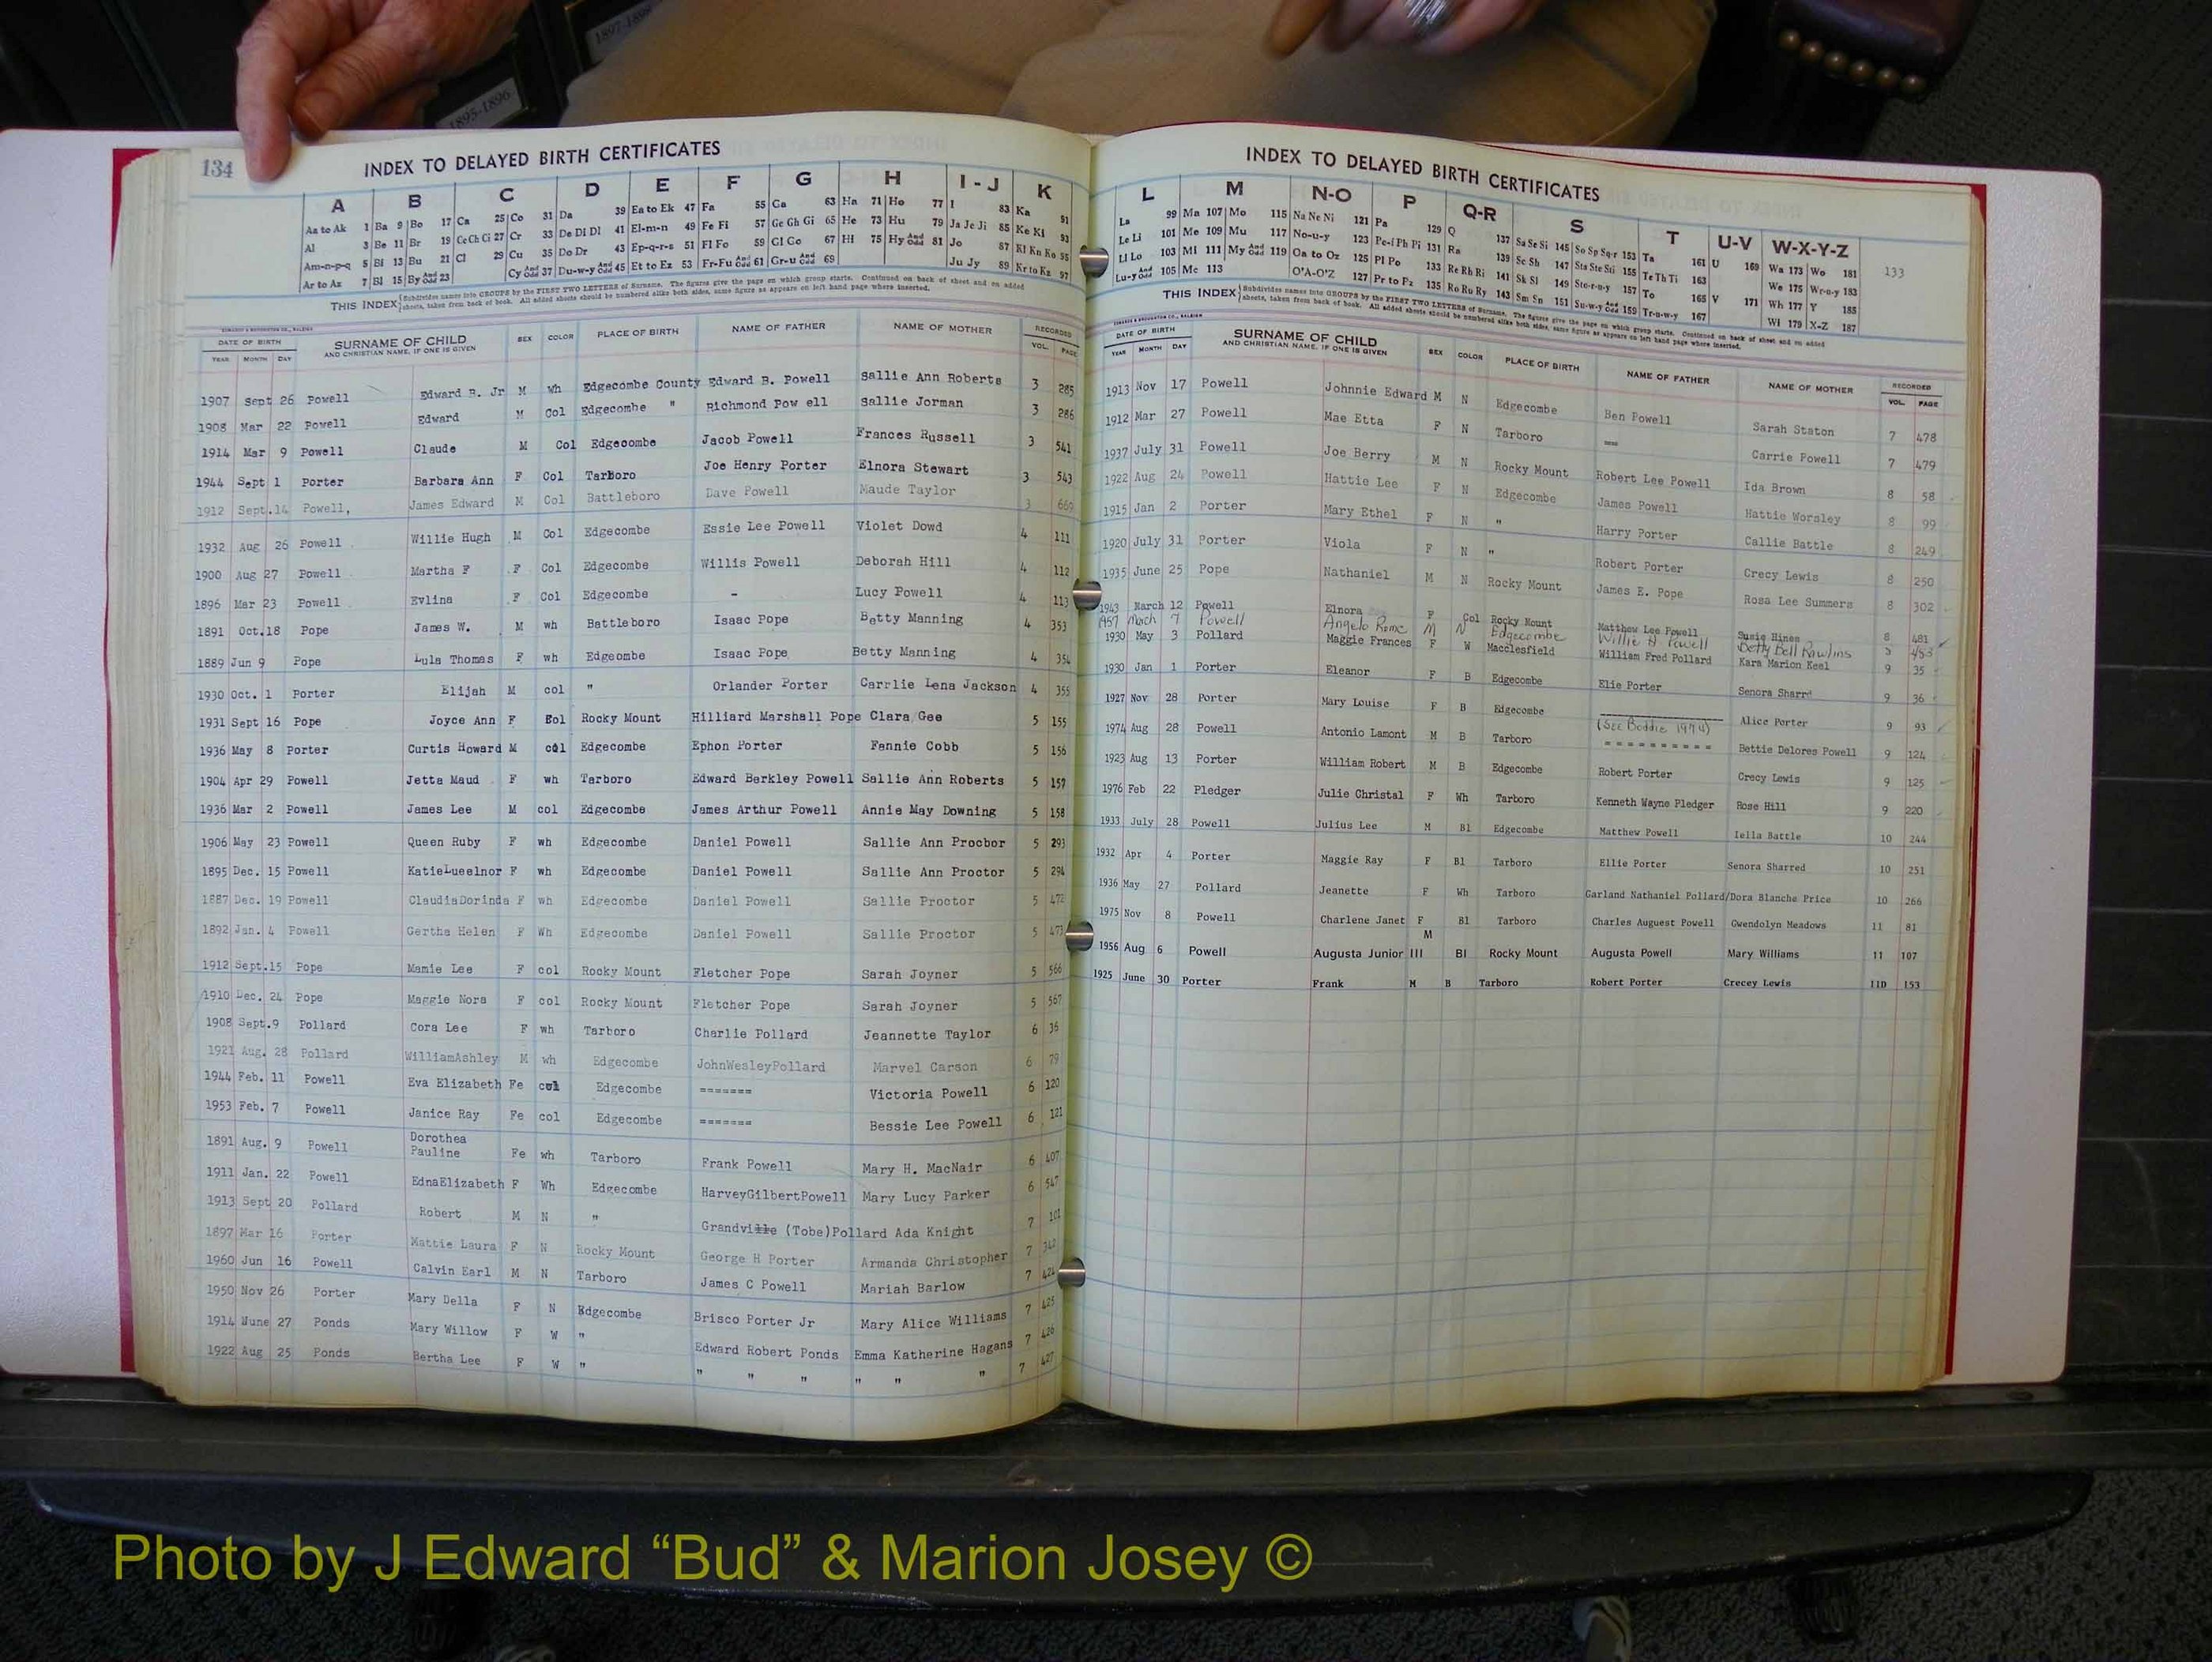 1897-1898
1895-1896
134
INDEX TO DELAYED BIRTH CERTIFICATES
A B C D E F G H I-J K
Aa to Ak 1 Ba 9 Bo 17 Ca 25 Co 31 Da 39 Ea to Ek 47 Fa 55 Ga 63 Ha 71 Ho 77 I 83 Ka 91
Al 3 Be 11 Br 19 Ce Ch Ci 27 Cr 33 De Di Dl 41 El-m-n 49 Fe Fi 57 Ge Gh Gi 65 He 73 Hu 79 Ja Je Ji 85 Ke Ki 93
Am-n-p-q 5 Bi 13 Bu 21 Cl 29 Cu 35 Do Dr 43 Ep-q-r-s 51 Fl Fo 59 Gl Go 67 Hi 75 Hy And Odd 81 Jo 87 Kl Kn Ko 95
Ar to Az 7 Bl 15 By And Odd 23 Cy And Odd 37 Du-w-y And Odd 45 Et to Ez 53 Fr-Fu And Odd 61 Gr-u And Odd 69 Ju Jy 89 Kr to Kz 97
THIS INDEX Subdivides names into GROUPS by the FIRST TWO LETTERS of Surname. The figures give the page on which group starts. Continued on back of sheet and on added
sheets, taken from back of book. All added sheets should be numbered alike both sides, same figure as appears on left hand page where inserted.
DATE OF BIRTH SURNAME OF CHILD SEX COLOR PLACE OF BIRTH NAME OF FATHER NAME OF MOTHER RECORDED
YEAR MONTH DAY AND CHRISTIAN NAME, IF ONE IS GIVEN VOL. PAGE
1907 Sept 26 Powell Edward B. Jr M wh Edgecombe County Edward B. Powell Sallie Ann Roberts 3 285
1908 Mar 22 Powell Edward M Col Edgecombe " Richmond Pow ell Sallie Jorman 3 286
1914 Mar 9 Powell Claude M Col Edgecombe Jacob Powell Frances Russell 3 541
1944 Sept 1 Porter Barbara Ann F Col Tarboro Joe Henry Porter Elnora Stewart 3 543
1912 Sept.14 Powell, James Edward M Col Battleboro Dave Powell Maude Taylor 3 669
1932 Aug 26 Powell Willie Hugh M Col Edgecombe Essie Lee Powell Violet Dowd 4 111
1900 Aug 27 Powell Martha F F Col Edgecombe Willis Powell Deborah Hill 4 112
1896 Mar 23 Powell Evlina F Col Edgecombe - Lucy Powell 4 113
1891 Oct.18 Pope James W. M wh Battleboro Isaac Pope Betty Manning 4 353
1889 Jun 9 Pope Lula Thomas F wh Edgeombe Isaac Pope Betty Manning 4 354
1930 Oct. 1 Porter Elijah M col " Orlander Porter Carrlie Lena Jackson 4 355
1931 Sept 16 Pope Joyce Ann F Eol Rocky Mount Hilliard Marshall Pope Clara Gee 5 155
1936 May 8 Porter Curtis Howard M col Edgecombe Ephon Porter Fennie Cobb 5 156
1904 Apr 29 Powell Jetta Maud F wh Tarboro Edward Berkley Powell Sallie Ann Roberts 5 157
1936 Mar 2 Powell James Lee M col Edgecombe James Arthur Powell Annie May Downing 5 158
1906 May 23 Powell Queen Ruby F wh Edgecombe Daniel Powell Sallie Ann Procbor 5 293
1895 Dec. 15 Powell KatieLueelnor F wh Edgecombe Daniel Powell Sallie Ann Proctor 5 294
1887 Dec. 19 Powell ClaudiaDorinda F wh Edgecombe Daniel Powell Sallie Proctor 5 472
1892 Jan. 4 Powell Gertha Helen F Wh Edgecombe Daniel Powell Sallie Proctor 5 473
1912 Sept.15 Pope Mamie Lee F col Rocky Mount Fletcher Pope Sarah Joyner 5 566
1910 Dec. 24 Pope Maggie Nora F col Rocky Mount Fletcher Pope Sarah Joyner 5 567
1908 Sept.9 Pollard Cora Lee F wh Tarboro Charlie Pollard Jeannette Taylor 6 36
1921 Aug. 28 Pollard WilliamAshley M wh Edgecombe JohnWesleyPollard Marvel Carson 6 79
1944 Feb. 11 Powell Eva Elizabeth Fe col Edgecombe ======= Victoria Powell 6 120
1953 Feb. 7 Powell Janice Ray Fe col Edgecombe ======= Bessie Lee Powell 6 121
1891 Aug. 9 Powell Dorothea Pauline Fe wh Tarboro Frank Powell Mary H. MacNair 6 407
1911 Jan. 22 Powell EdnaElizabeth F Wh Edgecombe HarveyGilbertPowell Mary Lucy Parker 6 547
1913 Sept 20 Pollard Robert M N " Grandville (Tobe)Pollard Ada Knight 7 101
1897 Mar 16 Porter Mattie Laura F N Rocky Mount George H Porter Armanda Christopher 7 342
1960 Jun 16 Powell Calvin Earl M N Tarboro James C Powell Mariah Barlow 7 424
1950 Nov 26 Porter Mary Della F N Edgecombe Brisco Porter Jr Mary Alice Williams 7 425
1914 June 27 Ponds Mary Willow F W " Edward Robert Ponds Emma Katherine Hagans 7 426
1922 Aug 25 Ponds Bertha Lee F W " " " " " " " 7 427
INDEX TO DELAYED BIRTH CERTIFICATES
L M N-O P Q-R S T U-V W-X-Y-Z
La 99 Ma 107 Mo 115 Na Ne Ni 121 Pa 129 Q 137 Sa Se Si 145 So Sp Sq-r 153 Ta 161 U 169 Wa 173 Wo 181 133
Le Li 101 Me 109 Mu 117 No-u-y 123 Pe-f Ph Pi 131 Ra 139 Sc Sh 147 Sta Ste Sti 155 Te Th Ti 163 We 175 Wr-u-y 183
Ll Lo 103 Mi 111 My And Odd 119 Oa to Oz 125 Pl Po 133 Re Rh Ri 141 Sk Sl 149 Sto-r-u-y 157 To 165 V 171 Wh 177 Y 185
Lu-y And Odd 105 Mc 113 O'A-O'Z 127 Pr to Pz 135 Ro Ru Ry 143 Sm Sn 151 Su-w-y And Odd 159 Tr-u-w-y 167 Wi 179 X-Z 187
THIS INDEX Subdivides names into GROUPS by the FIRST TWO LETTERS of Surname. The figures give the page on which group starts. Continued on back of sheet and on added
sheets, taken from back of book. All added sheets should be numbered alike both sides, same figure as appears on left hand page where inserted.
DATE OF BIRTH SURNAME OF CHILD SEX COLOR PLACE OF BIRTH NAME OF FATHER NAME OF MOTHER RECORDED
YEAR MONTH DAY AND CHRISTIAN NAME, IF ONE IS GIVEN VOL. PAGE
1913 Nov 17 Powell Johnnie Edward M N Edgecombe Ben Powell Sarah Staton 7 478
1912 Mar 27 Powell Mae Etta F N Tarboro == Carrie Powell 7 479
1937 July 31 Powell Joe Berry M N Rocky Mount Robert Lee Powell Ida Brown 8 58
1922 Aug 24 Powell Hattie Lee F N Edgecombe James Powell Hattie Worsley 8 99
1915 Jan 2 Porter Mary Ethel F N " Harry Porter Callie Battle 8 249
1920 July 31 Porter Viola F N " Robert Porter Crecy Lewis 8 250
1935 June 25 Pope Nathaniel M N Rocky Mount James E. Pope Rosa Lee Summers 8 302
1943 March 12 Powell Elnora F Col Rocky Mount Matthew Lee Powell Susie Hines 8 481
1957 March 7 Powell Angelo Rome M N Edgecombe Willie H. Powell Betty Bell Rawlins
1930 May 3 Pollard Maggie Frances F W Macclesfield William Fred Pollard Kara Marion Keel 9 35
1930 Jan 1 Porter Eleanor F B Edgecombe Elie Porter Senora Sharrd 9 36
1927 Nov 28 Porter Mary Louise F B Edgecombe Alice Porter 9 93
1974 Aug 28 Powell Antonio Lamont M B Tarboro (See Boddie 1974) ========== Bettie Delores Powell 9 124
1923 Aug 13 Porter William Robert M B Edgecombe Robert Porter Crecy Lewis 9 125
1976 Feb 22 Pledger Julie Christal F Wh Tarboro Kenneth Wayne Pledger Rose Hill 9 220
1933 July 28 Powell Julius Lee M Bl Edgecombe Matthew Powell Iella Battle 10 244
1932 Apr 4 Porter Maggie Ray F Bl Tarboro Ellie Porter Senora Sharred 10 251
1936 May 27 Pollard Jeanette F Wh Tarboro Garland Nathaniel Pollard/Dora Blanche Price 10 266
1975 Nov 8 Powell Charlene Janet F Bl Tarboro Charles Auguest Powell Gwendolyn Meadows 11 81
1956 Aug 6 Powell Augusta Junior III M Bl Rocky Mount Augusta Powell Mary Williams 11 107
1925 June 30 Porter Frank M B Tarboro Robert Porter Crecey Lewis 11D 153
Photo by J Edward “Bud” & Marion Josey ©